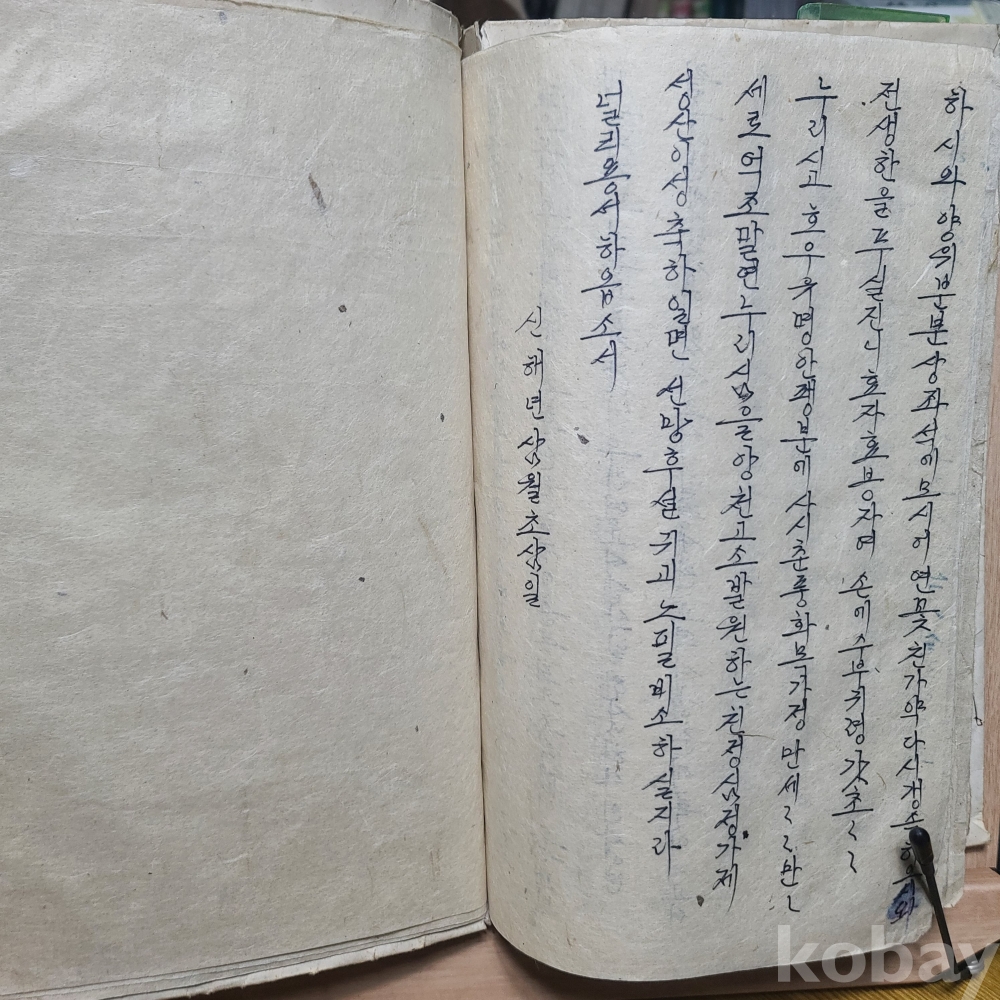 하시와 양위분분상좌석에모시어 연꽃친가약다시갱손하우시와
전생한을푸실진니효자효봉자며 손에수부귀령갓초〻
누리시고 효우우명안쟁분에사시춘풍화목가정만세〻〻만〻
세로여조말연누리심을앙천고소발원하는친정심정가제
성산이성축하일면 선망후실귀괴노필비소하실지라
널리용서하옵소서
신해년삼월초삼일
kobay